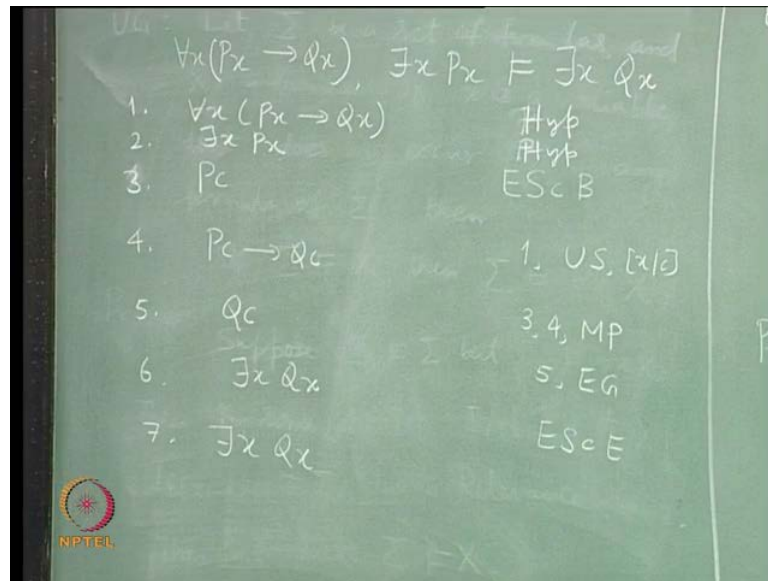 ∀x(Px → Qx), ∃x Px ⊨ ∃x Qx
1. ∀x (Px → Qx) Hyp
2. ∃x Px Hyp
3. Pc ESc B
4. Pc → Qc 1, US, [x/c]
5. Qc 3, 4, MP
6. ∃x Qx 5, EG
7. ∃x Qx ESc E
NPTEL